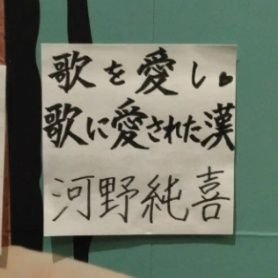 歌を愛し、
歌に愛された漢
河野純喜